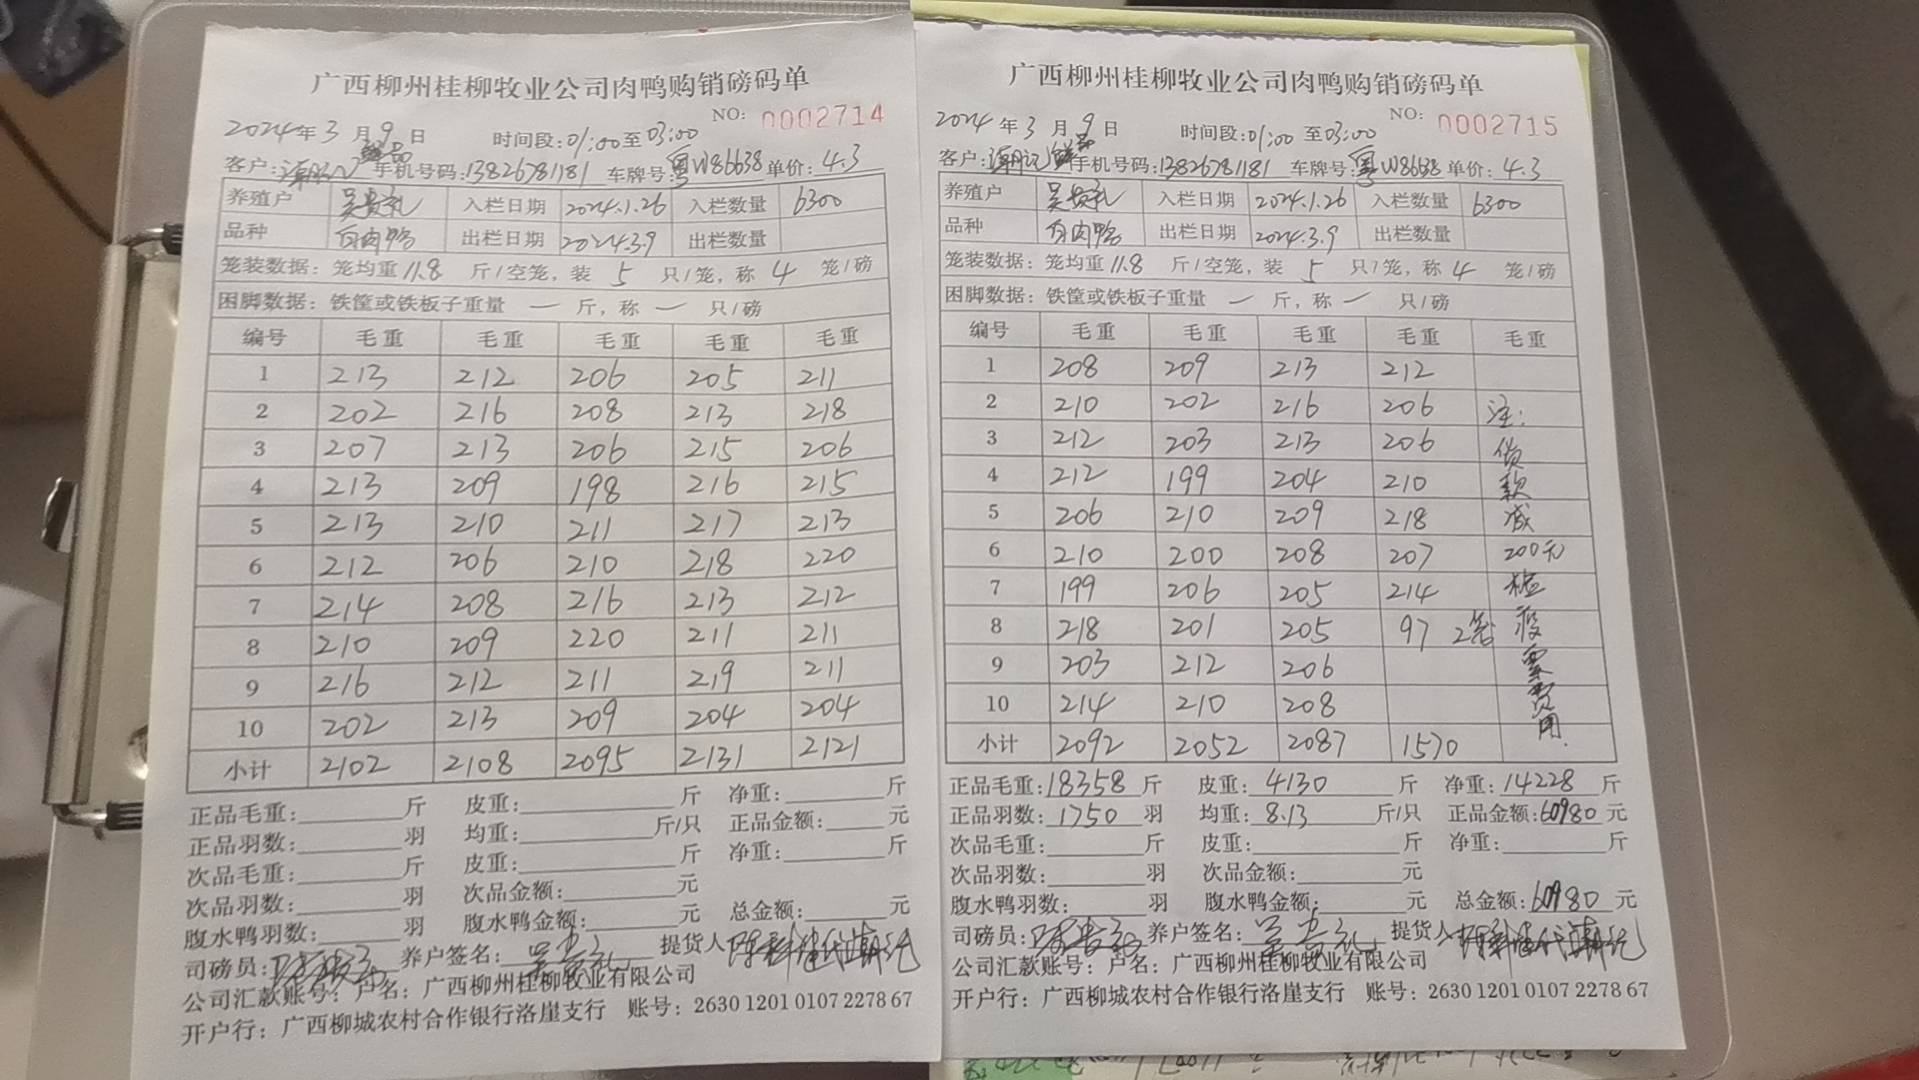 广西柳州桂柳牧业公司肉鸭购销磅码单
NO: 0002714
2024年3月9日 时间段:01:00至03:00
客户: 潮记鲜品 手机号码:13826781181 车牌号:粤W86638 单价:4.3
养殖户 吴贵礼 入栏日期 2024.1.26 入栏数量 6300
品种 白肉鸭 出栏日期 2024.3.9 出栏数量
笼装数据: 笼均重 11.8 斤/空笼, 装 5 只/笼, 称 4 笼/磅
困脚数据: 铁筐或铁板子重量 — 斤, 称 — 只/磅
编号 毛重 毛重 毛重 毛重 毛重
1 213 212 206 205 211
2 202 216 208 213 218
3 207 213 206 215 206
4 213 209 198 216 215
5 213 210 211 217 213
6 212 206 210 218 220
7 214 208 216 213 212
8 210 209 220 211 211
9 216 212 211 219 211
10 202 213 209 204 204
小计 2102 2108 2095 2131 2121
正品毛重: 斤 皮重: 斤 净重: 斤
正品羽数: 羽 均重: 斤/只 正品金额: 元
次品毛重: 斤 皮重: 斤 净重: 斤
次品羽数: 羽 次品金额: 元
腹水鸭羽数: 羽 腹水鸭金额: 元 总金额: 元
司磅员: 养户签名: 吴贵礼 提货人
公司汇款账号: 户名: 广西柳州桂柳牧业有限公司
开户行: 广西柳城农村合作银行洛崖支行 账号: 2630 1201 0107 2278 67
广西柳州桂柳牧业公司肉鸭购销磅码单
NO: 0002715
2024年3月9日 时间段:01:00至03:00
客户: 潮记鲜品 手机号码:13826781181 车牌号:粤W86638 单价: 4.3
养殖户 吴贵礼 入栏日期 2024.1.26 入栏数量 6300
品种 白肉鸭 出栏日期 2024.3.9 出栏数量
笼装数据: 笼均重 11.8 斤/空笼, 装 5 只/笼, 称 4 笼/磅
困脚数据: 铁筐或铁板子重量 — 斤, 称 — 只/磅
编号 毛重 毛重 毛重 毛重 毛重
1 208 209 213 212
2 210 202 216 206 注:
3 212 203 213 206 货
4 212 199 204 210 款
5 206 210 209 218 减
6 210 200 208 207 200元
7 199 206 205 214 检
8 218 201 205 97 2笼 疫
9 203 212 206 票
10 214 210 208 费
小计 2092 2052 2087 1570 用.
正品毛重:18358斤 皮重: 4130 斤 净重: 14228 斤
正品羽数: 1750 羽 均重: 8.13 斤/只 正品金额:60980元
次品毛重: 斤 皮重: 斤 净重: 斤
次品羽数: 羽 次品金额: 元
腹水鸭羽数: 羽 腹水鸭金额: 元 总金额:60980元
司磅员: 养户签名: 吴贵礼 提货人
公司汇款账号: 户名: 广西柳州桂柳牧业有限公司
开户行: 广西柳城农村合作银行洛崖支行 账号: 2630 1201 0107 2278 67